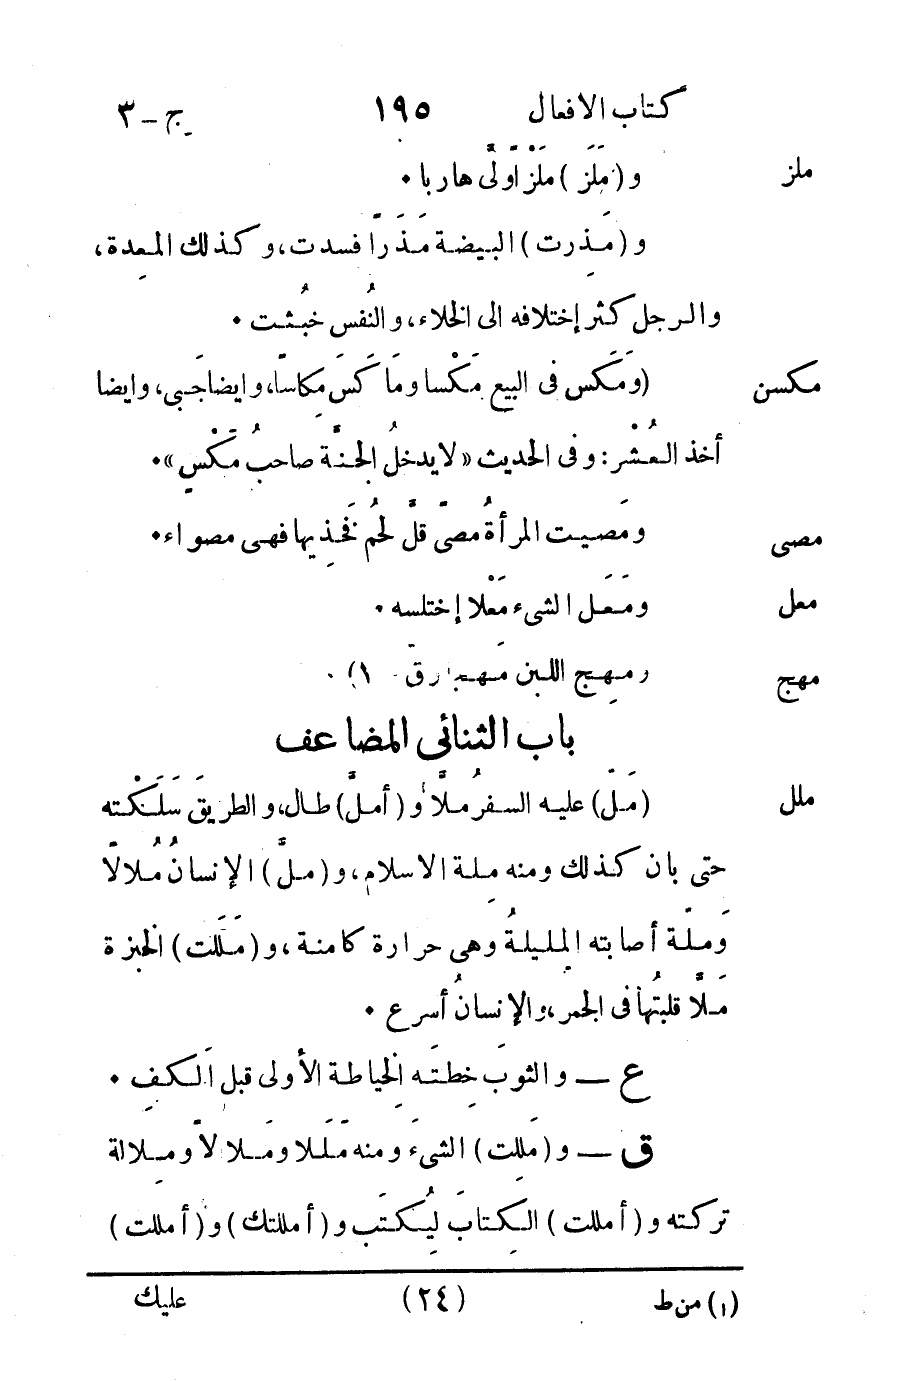 كتاب الافعال ١٩٥ ج-٣
ملز و (مَلَز) مَلْزاً وَلَّى هاربا ٠
و (مَذِرت) البيضة مَذَراً فسدت، وكذلك المعِدة،
والرجل كثُر إختلافه الى الخلاء، والنُفس خبُثت ٠
مكسن (ومَكَس فى البيع مَكْسا ومَاكَسَ مِكاسًا، وايضا جَبى، وايضا
أخذ العُشْر: وفى الحديث «لا يدخلُ الجنّة صاحبُ مَكْسٍ»٠
مصى ومَصِيت المرأةُ مصىً قلَّ لحمُ فَخِذيها فهى مصواء٠
معل ومَعَل الشىء مَعْلا إختلسه ٠
مهج ومهج اللبن مهجا رق (١) ٠
باب الثنائى المضاعف
ملل (مَلّ) عليه السفرُ ملاًّ و (أملَّ) طال، والطريقَ سَلَكْته
حتى بان كذلك ومنه مِلة الاسلام، و (ملَّ) الإنسانُ مُلالاً
وَملّة أصابته المَلِيلةُ وهى حرارة كامنة، و (مَلَلت) الخبزة
مَلاًّ قلبتُها فى الجمر، والإنسانُ أسرع ٠
ع — والثوبَ خِطتَه الخِياطة الأولى قبل الَكف ٠
ق — و (مَلِلت) الشىءَ ومنه مَلَلا ومَلالاً وملالة
تركته و (أمللت) الكِتابَ لِيُكتَب و (أمللتك) و (أمللت)
(١) من ط (٢٤) عليك